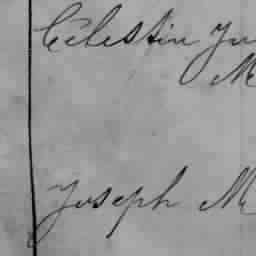 Celestin
M
Joseph M